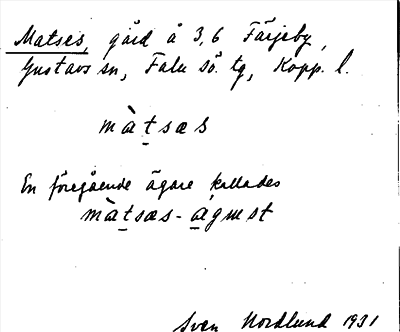 Matses, gård å 3,6 Färjeby,
Gustavs sn, Falu sö. tg, Kopp. l.
màt̠sæs
En föregående ägare kallades
màt̠sæs-a̠gust
Sven Nordlund 1931